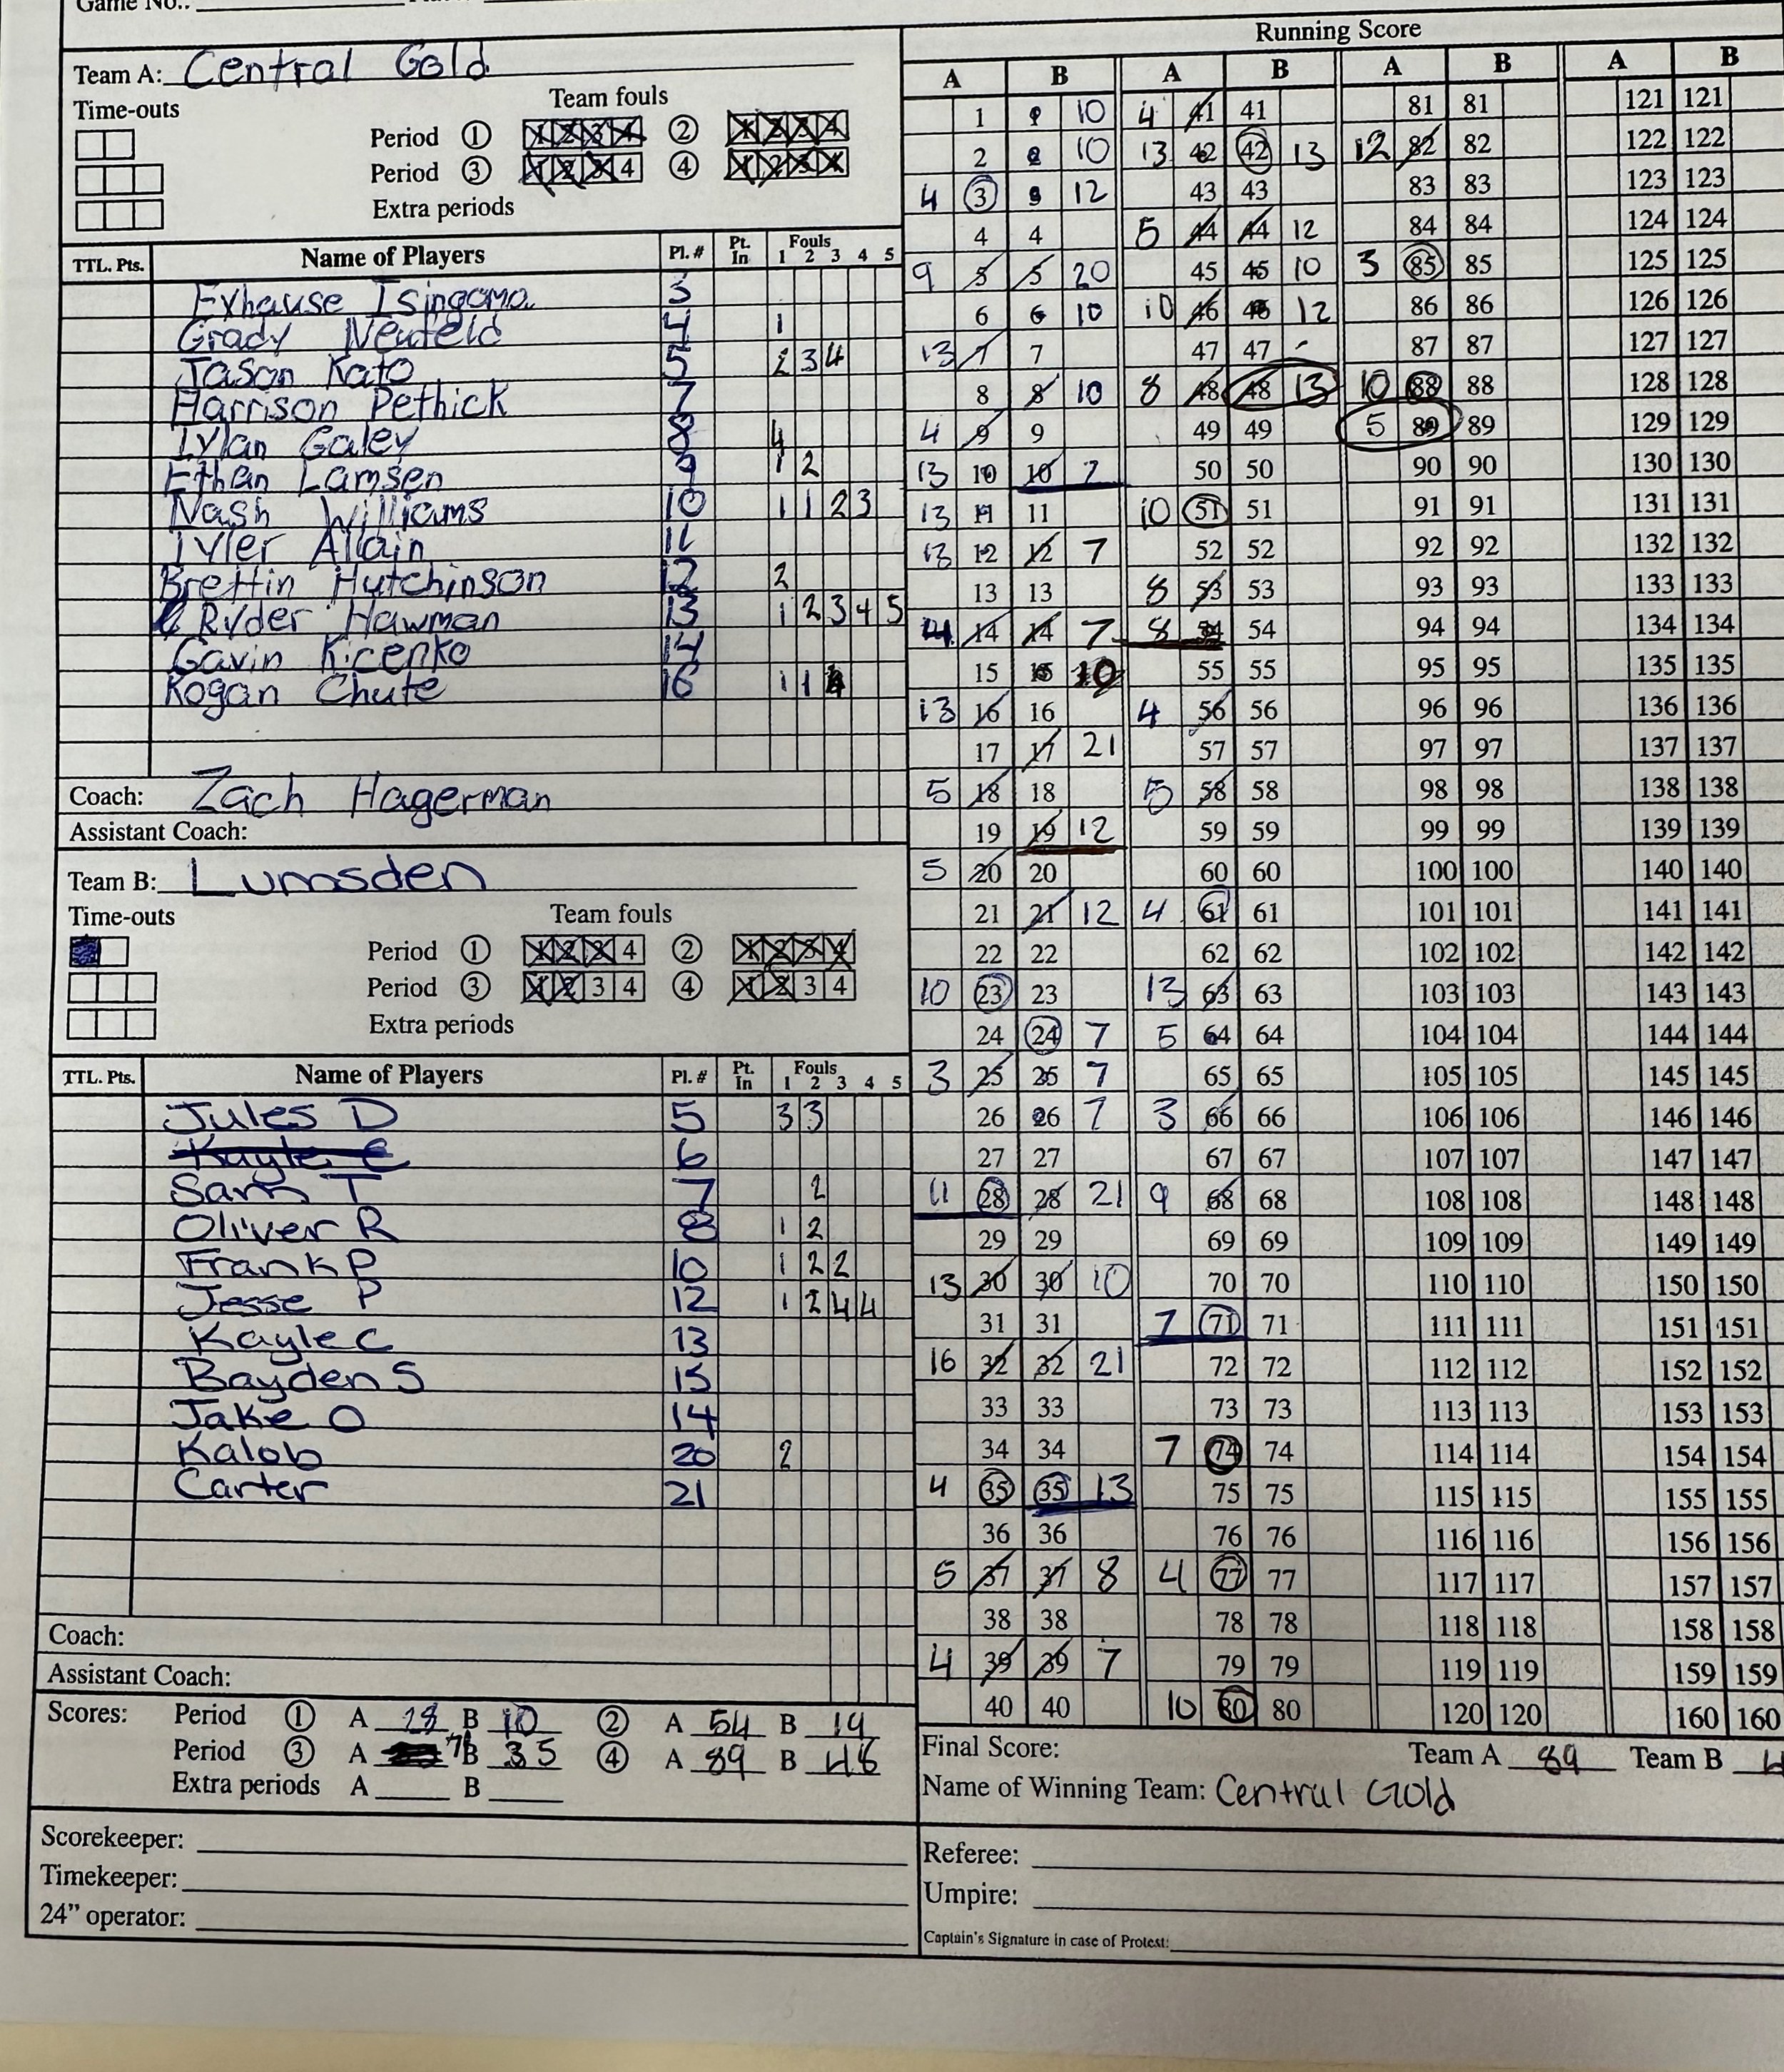 Game No.:
Team A: Central Gold
Time-outs Team fouls
Period ① 1 2 3 4 ② 1 2 3 4
Period ③ 1 2 3 4 ④ 1 2 3 4
Extra periods
TTL. Pts. Name of Players Pl. # Pt. In Fouls 1 2 3 4 5
Exhause Isingoma 3
Grady Neufeld 4 1
Jason Kato 5 2 3 4
Harrison Pethick 7
Dylan Galey 8 4
Ethan Lamsen 9 1 2
Nash Williams 10 1 1 2 3
Tyler Allain 11
Brettin Hutchinson 12 2
Ryder Hawman 13 1 2 3 4 5
Gavin Kicenko 14
Kogan Chute 16 1 1 4
Coach: Zach Hagerman
Assistant Coach:
Team B: Lumsden
Time-outs Team fouls
Period ① 1 2 3 4 ② 1 2 3 4
Period ③ 1 2 3 4 ④ 1 2 3 4
Extra periods
TTL. Pts. Name of Players Pl. # Pt. In Fouls 1 2 3 4 5
Jules D 5 3 3
Kayle C 6
Sam T 7 2
Oliver R 8 1 2
Frank P 10 1 2 2
Jesse P 12 1 2 4 4
Kayle C 13
Bayden S 15
Jake O 14
Kalob 20 2
Carter 21
Coach:
Assistant Coach:
Scores: Period ① A 28 B 10 ② A 54 B 19
Period ③ A 71 B 35 ④ A 89 B 48
Extra periods A B
Scorekeeper:
Timekeeper:
24” operator:
Running Score
A B A B A B A B
1 1 10 4 41 41 81 81 121 121
2 2 10 13 42 42 13 12 82 82 122 122
4 3 3 12 43 43 83 83 123 123
4 4 5 44 44 12 84 84 124 124
9 5 5 20 45 45 10 3 85 85 125 125
6 6 10 10 46 46 12 86 86 126 126
13 7 7 47 47 87 87 127 127
8 8 10 8 48 48 13 10 88 88 128 128
4 9 9 49 49 5 89 89 129 129
13 10 10 7 50 50 90 90 130 130
13 11 11 10 51 51 91 91 131 131
13 12 12 7 52 52 92 92 132 132
13 13 8 53 53 93 93 133 133
4 14 14 7 8 54 54 94 94 134 134
15 15 10 55 55 95 95 135 135
13 16 16 4 56 56 96 96 136 136
17 17 21 57 57 97 97 137 137
5 18 18 5 58 58 98 98 138 138
19 19 12 59 59 99 99 139 139
5 20 20 60 60 100 100 140 140
21 21 12 4 61 61 101 101 141 141
22 22 62 62 102 102 142 142
10 23 23 13 63 63 103 103 143 143
24 24 7 5 64 64 104 104 144 144
3 25 25 7 65 65 105 105 145 145
26 26 7 3 66 66 106 106 146 146
27 27 67 67 107 107 147 147
11 28 28 21 9 68 68 108 108 148 148
29 29 69 69 109 109 149 149
13 30 30 10 70 70 110 110 150 150
31 31 7 71 71 111 111 151 151
16 32 32 21 72 72 112 112 152 152
33 33 73 73 113 113 153 153
34 34 7 74 74 114 114 154 154
4 35 35 13 75 75 115 115 155 155
36 36 76 76 116 116 156 156
5 37 37 8 4 77 77 117 117 157 157
38 38 78 78 118 118 158 158
4 39 39 7 79 79 119 119 159 159
40 40 10 80 80 120 120 160 160
Final Score: Team A 89 Team B
Name of Winning Team: Central Gold
Referee:
Umpire:
Captain's Signature in case of Protest: